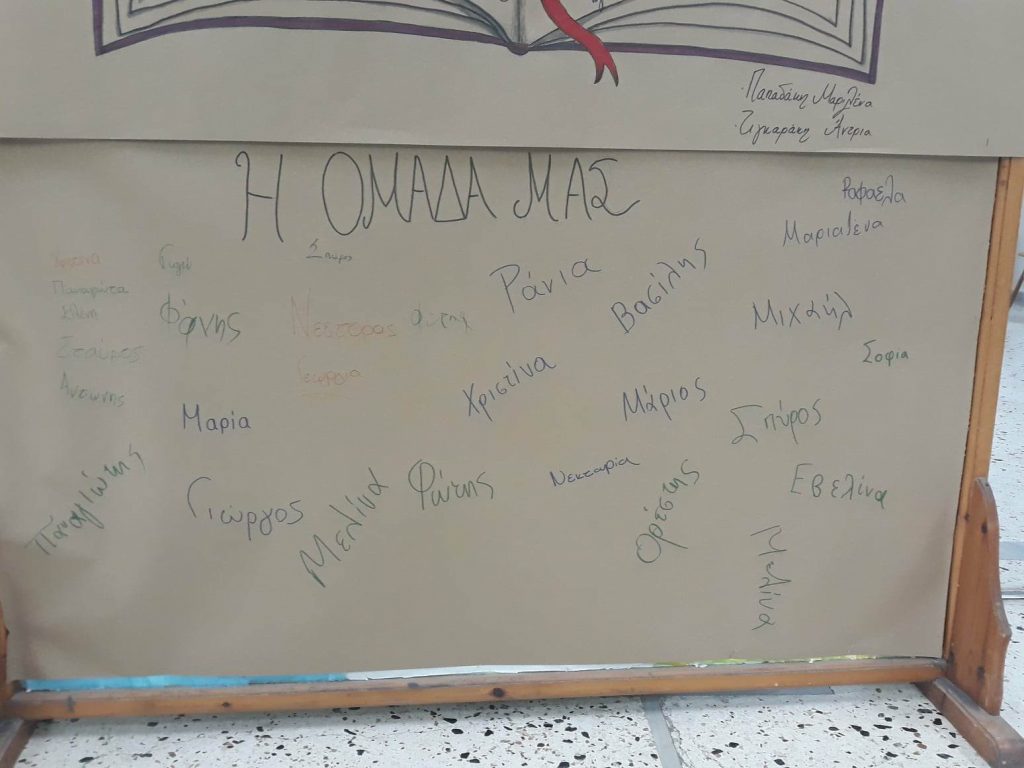 Παπαδάκη Μαριλένα
Τιγκαράκη Άντρια
Η ΟΜΑΔΑ ΜΑΣ
Ραφαέλα
Μαριαλένα
Σπύρος
Ράνια
Βασίλης
Παναγιώτα
Ελένη
Φάνης
Νέστορας
Φώτης
Μιχαήλ
Σταύρος
Σοφία
Γεωργία
Αντώνης
Χριστίνα
Μάριος
Μαρία
Σπύρος
Παναγιώτης
Γιώργος
Μελίνα
Φώτης
Νεκταρία
Ορέστης
Εβελίνα
Μελίνα